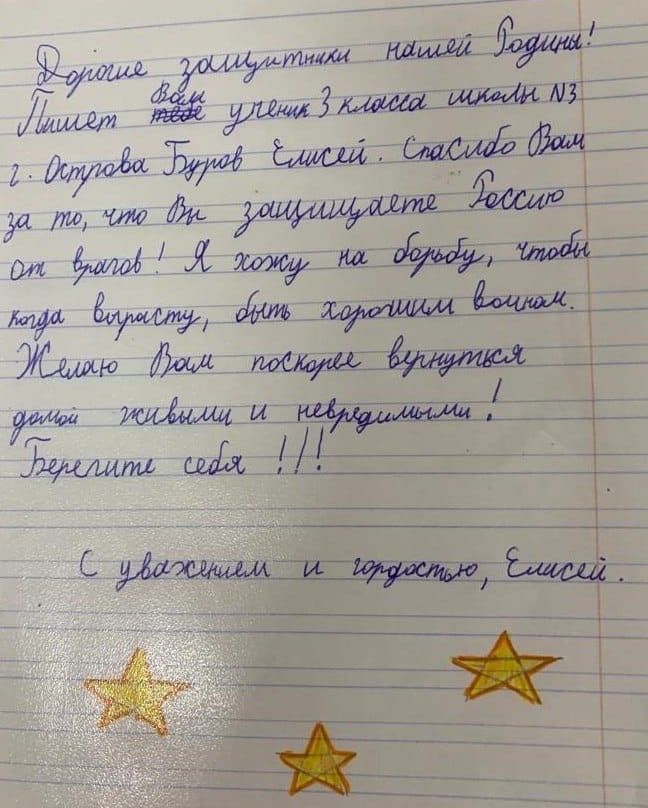 Дорогие защитники нашей Родины!
Пишет Вам ученик 3 класса школы N3
г. Острова Буров Елисей. Спасибо Вам
за то, что Вы защищаете Россию
от врагов! Я хожу на борьбу, чтобы
когда вырасту, быть хорошим воином.
Желаю Вам поскорее вернуться
домой живыми и невредимыми!
Берегите себя!!!
С уважением и гордостью, Елисей.